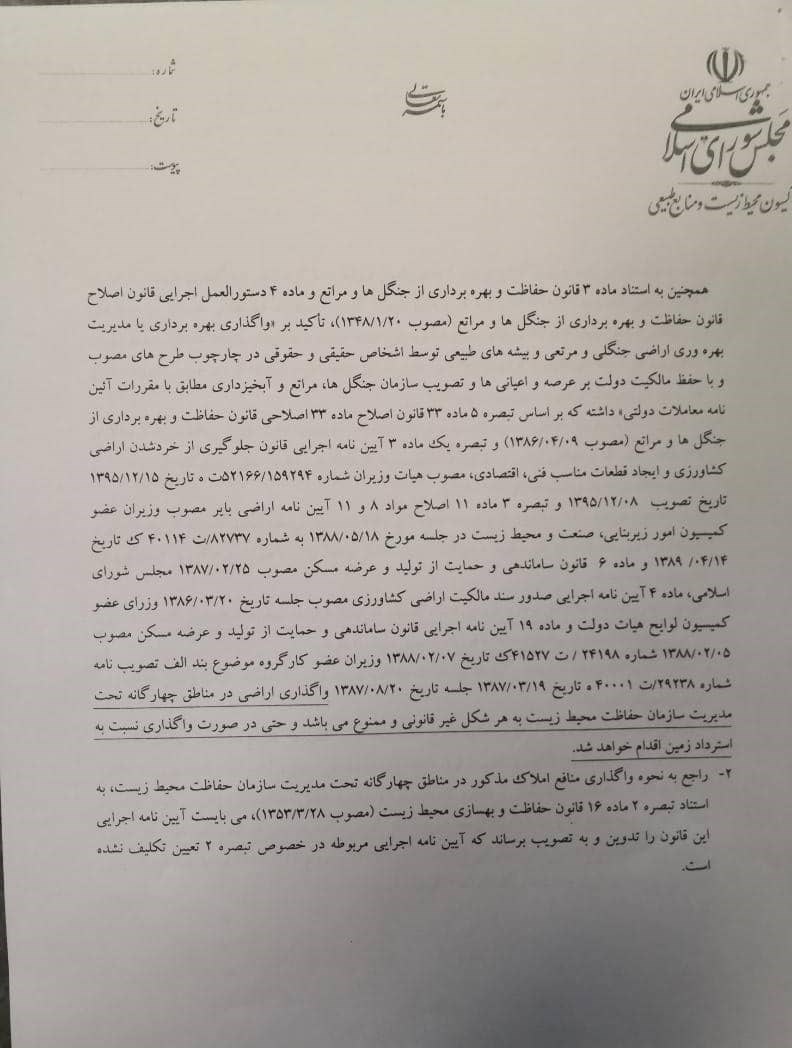 جمهوری اسلامی ایران
مجلس شورای اسلامی
کمیسیون محیط زیست و منابع طبیعی
باسمه تعالی
شماره:
تاریخ:
پیوست:
همچنین به استناد ماده ۳ قانون حفاظت و بهره برداری از جنگل ها و مراتع و ماده ۴ دستورالعمل اجرایی قانون اصلاح
قانون حفاظت و بهره برداری از جنگل ها و مراتع (مصوب ۱۳۴۸/۱/۲۰)، تأکید بر «واگذاری بهره برداری یا مدیریت
بهره وری اراضی جنگلی و مرتعی و بیشه های طبیعی توسط اشخاص حقیقی و حقوقی در چارچوب طرح های مصوب
و با حفظ مالکیت دولت بر عرصه و اعیانی ها و تصویب سازمان جنگل ها، مراتع و آبخیزداری مطابق با مقررات آئین
نامه معاملات دولتی» داشته که بر اساس تبصره ۵ ماده ۳۳ قانون اصلاح ماده ۳۳ اصلاحی قانون حفاظت و بهره برداری از
جنگل ها و مراتع (مصوب ۱۳۸۶/۰۴/۰۹) و تبصره یک ماده ۳ آیین نامه اجرایی قانون جلوگیری از خردشدن اراضی
کشاورزی و ایجاد قطعات مناسب فنی، اقتصادی، مصوب هیات وزیران شماره ۵۲۱۶۶/۱۵۹۲۹۴ت ه تاریخ ۱۳۹۵/۱۲/۱۵
تاریخ تصویب ۱۳۹۵/۱۲/۰۸ و تبصره ۳ ماده ۱۱ اصلاح مواد ۸ و ۱۱ آیین نامه اراضی بایر مصوب وزیران عضو
کمیسیون امور زیربنایی، صنعت و محیط زیست در جلسه مورخ ۱۳۸۸/۰۵/۱۸ به شماره ۸۲۷۳۷/ت ۴۰۱۱۴ ک تاریخ
۱۳۸۹ /۰۴/۱۴ و ماده ۶ قانون ساماندهی و حمایت از تولید و عرضه مسکن مصوب ۱۳۸۷/۰۲/۲۵ مجلس شورای
اسلامی، ماده ۴ آیین نامه اجرایی صدور سند مالکیت اراضی کشاورزی مصوب جلسه تاریخ ۱۳۸۶/۰۳/۲۰ وزرای عضو
کمیسیون لوایح هیات دولت و ماده ۱۹ آیین نامه اجرایی قانون ساماندهی و حمایت از تولید و عرضه مسکن مصوب
۱۳۸۸/۰۲/۰۵ شماره ۲۴۱۹۸ / ت ۴۱۵۲۷ک تاریخ ۱۳۸۸/۰۲/۰۷ وزیران عضو کارگروه موضوع بند الف تصویب نامه
شماره ۲۹۲۳۸/ت ۴۰۰۰۱ ه تاریخ ۱۳۸۷/۰۳/۱۹ جلسه تاریخ ۱۳۸۷/۰۸/۲۰ واگذاری اراضی در مناطق چهارگانه تحت
مدیریت سازمان حفاظت محیط زیست به هر شکل غیر قانونی و ممنوع می باشد و حتی در صورت واگذاری نسبت به
استرداد زمین اقدام خواهد شد.
۲- راجع به نحوه واگذاری منافع املاک مذکور در مناطق چهارگانه تحت مدیریت سازمان حفاظت محیط زیست، به
استناد تبصره ۲ ماده ۱۶ قانون حفاظت و بهسازی محیط زیست (مصوب ۱۳۵۳/۳/۲۸)، می بایست آیین نامه اجرایی
این قانون را تدوین و به تصویب برساند که آیین نامه اجرایی مربوطه در خصوص تبصره ۲ تعیین تکلیف نشده
است.